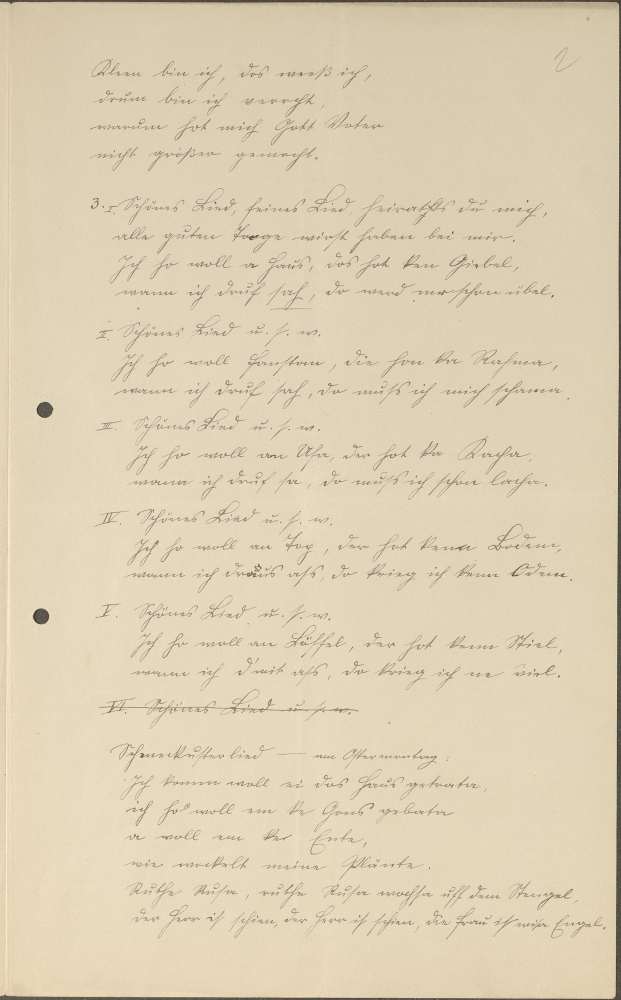 2
Kleen bin ich, das weeß ich,
drum bin ich veracht,
warum hot mich Gott Voter
nicht größer gemacht.
3. I. Schönes Lied, feines Lied, heirathst du mich,
alle guten Tage wirst haben bei mir.
Ich ho woll a Haus, das hot ken Giebel,
wann ich druf sah, do werd mr schon übel.
II. Schönes Lied u. s. w.
Ich ho woll Fanstan, die hon ka Rahma,
wann ich druf sah, do muss ich mich schama.
III. Schönes Lied u. s. w.
Ich ho woll an Ufa, der hot ka Kacha,
wann ich druf sa, do muss ich schon lacha.
IV. Schönes Lied u. s. w.
Ich ho woll an Top, der hot kenn Bodem,
wann ich draus ass, do krieg ich kenn Odem.
V. Schönes Lied u. s. w.
Ich ho woll an Löffel, der hot kenn Stiel,
wann ich d'mit ass, do krieg ich ne viel.
VI. Schönes Lied u. s. w.
Schmeckusterlied — am Ostermontag:
Ich komm woll ei das Haus getrata,
ich ho woll em ke Gons gebata
a woll em ke Ente,
wie wackelt meine Plänte.
Ruthe Rusa, ruthe Rusa wachsa uff dem Stengel,
der Herr is schien, der Herr is schien, die Frau is wie a Engel.